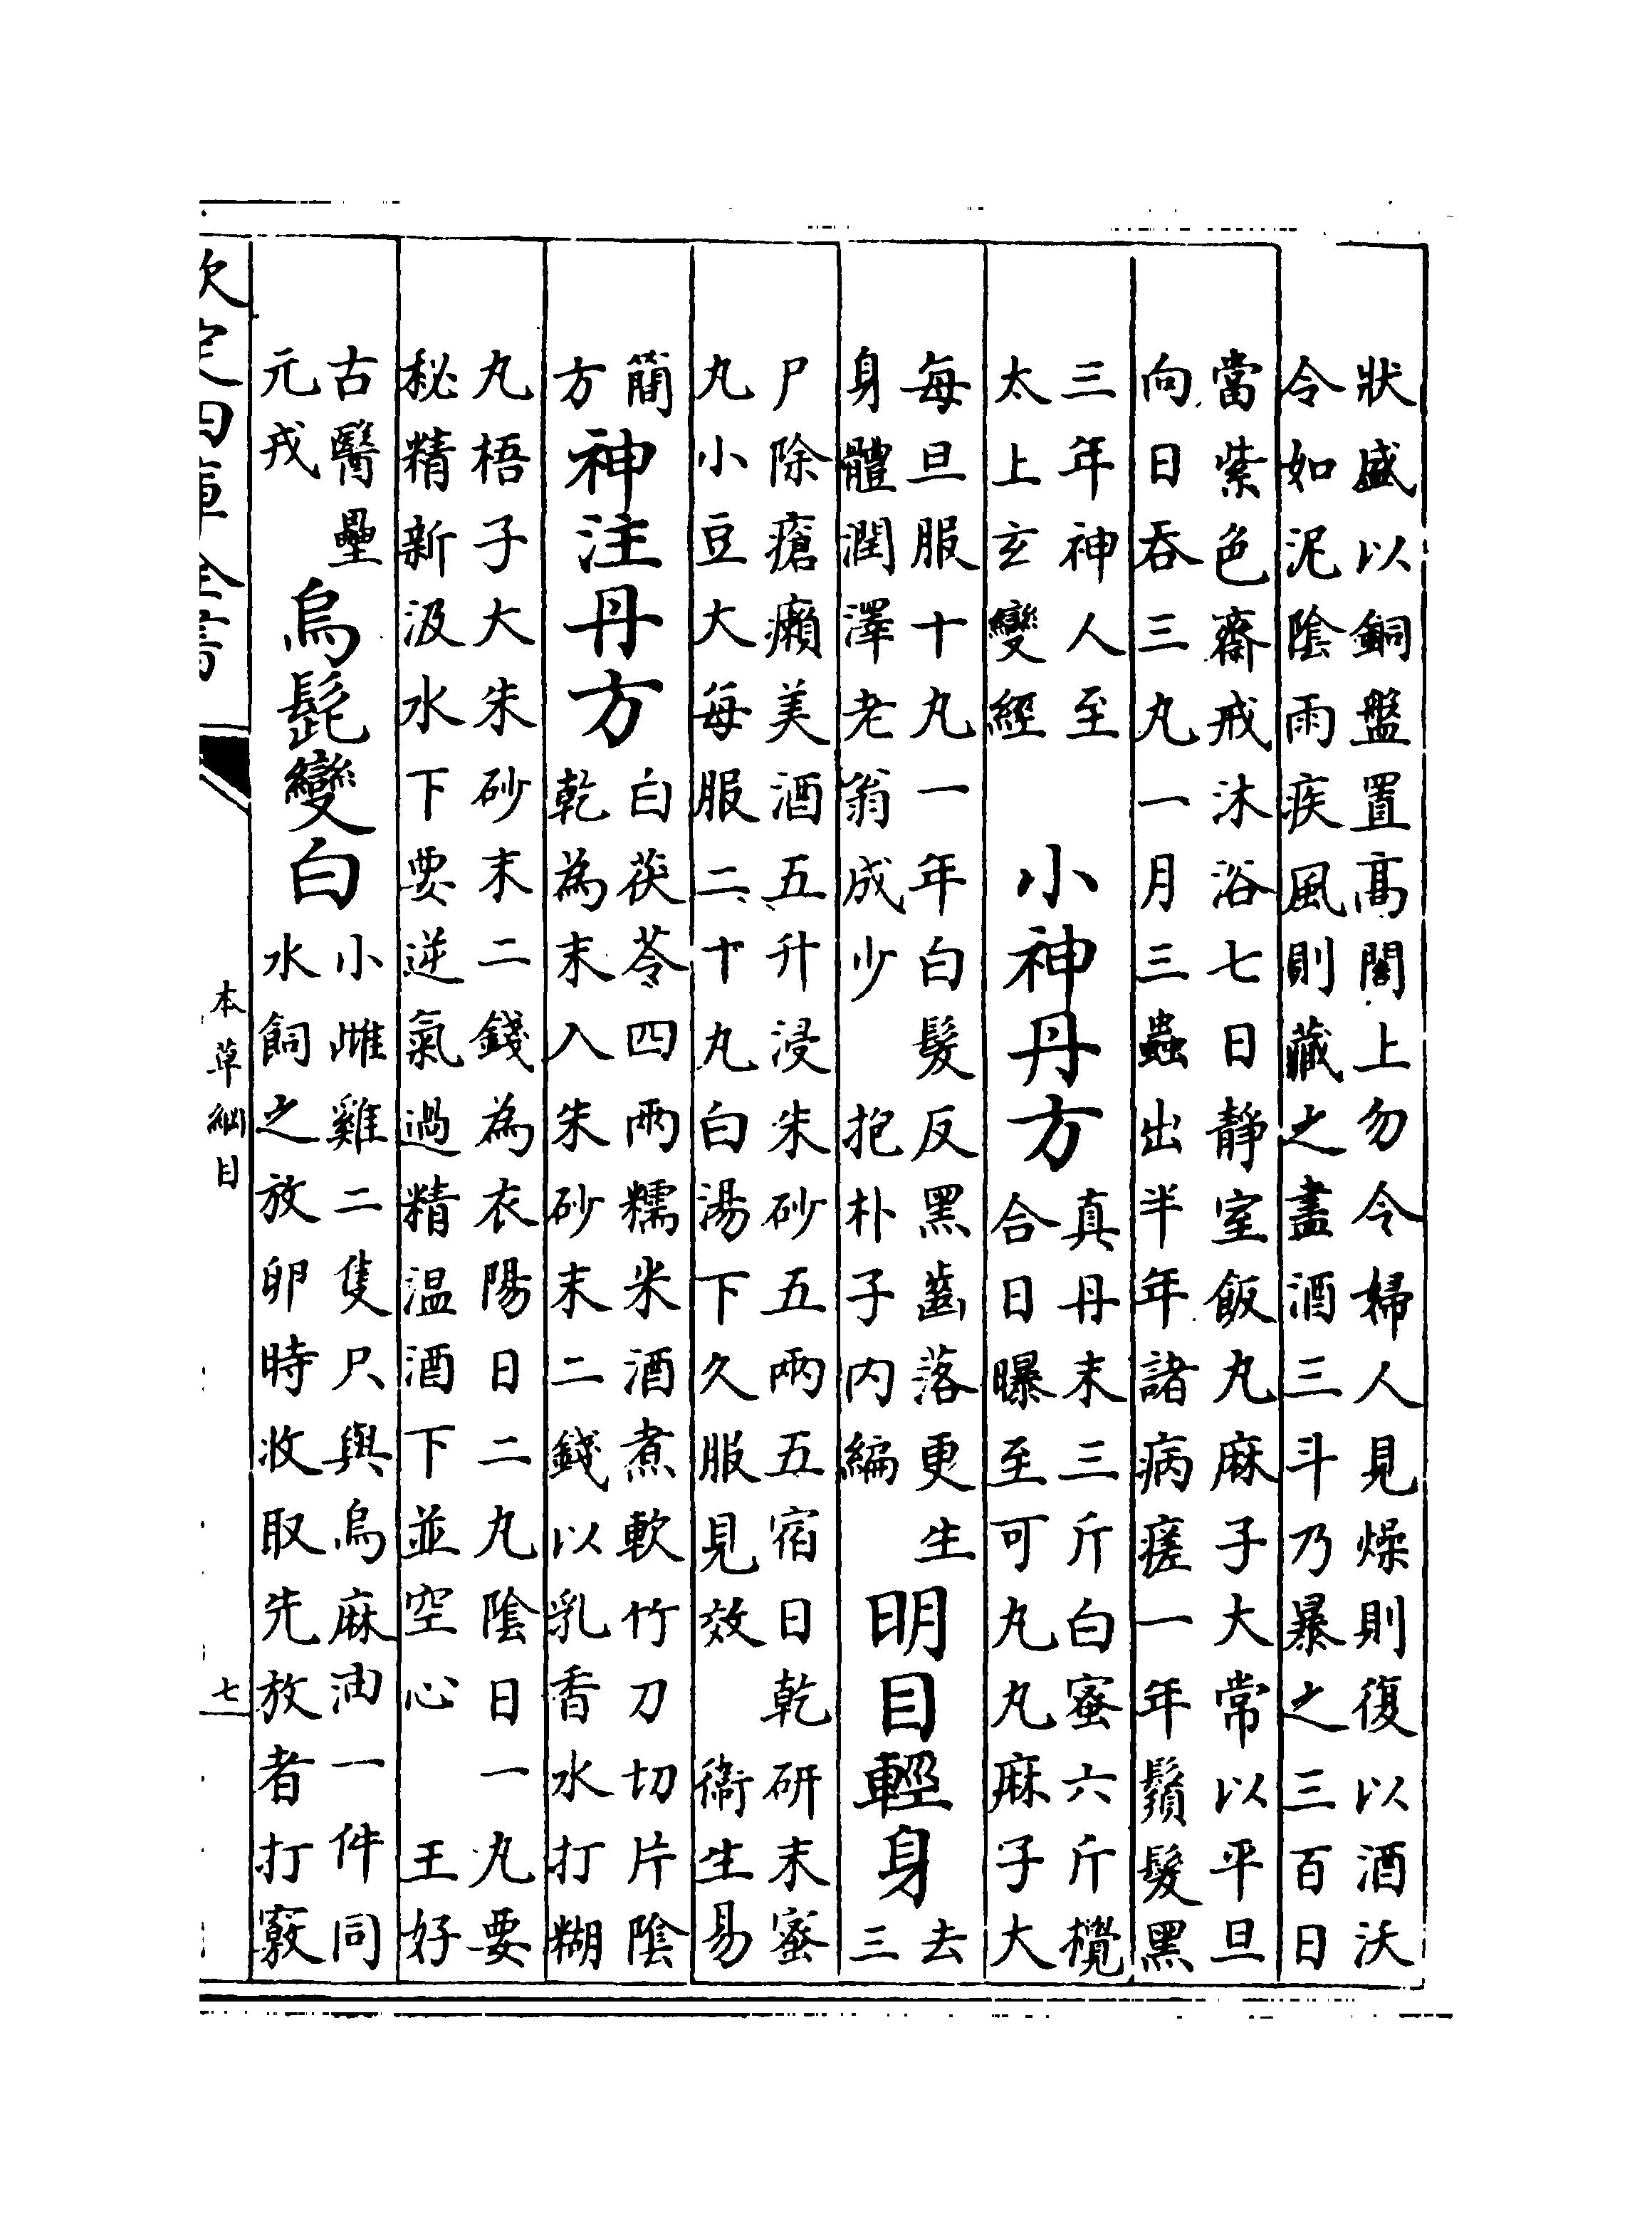 狀盛以銅盤置高閣上勿令婦人見燥則復以酒沃
令如泥陰雨疾風則藏之盡酒三斗乃暴之三百日
當紫色齋戒沐浴七日靜室飯丸麻子大常以平旦
向日吞三丸一月三蟲出半年諸病瘥一年鬚髮黑
三年神人至
太上玄變經
小神丹方
真丹末三斤白蜜六斤攪
合日曝至可丸丸麻子大
每旦服十丸一年白髮反黑齒落更生
身體潤澤老翁成少 抱朴子内編
明目輕身
去
三
尸除瘡癩美酒五升浸朱砂五兩五宿日乾研末蜜
丸小豆大每服二十丸白湯下久服見效 衞生易
簡
方
神注丹方
白茯苓四兩糯米酒煮軟竹刀切片陰
乾為末入朱砂末二錢以乳香水打糊
丸梧子大朱砂末二錢為衣陽日二丸陰日一丸要
秘精新汲水下要逆氣過精温酒下並空心 王好
古醫壘
元戎
烏髭變白
小雌雞二隻只與烏麻油一件同
水飼之放卵時收取先放者打竅
欽定四庫全書
本草綱目
七